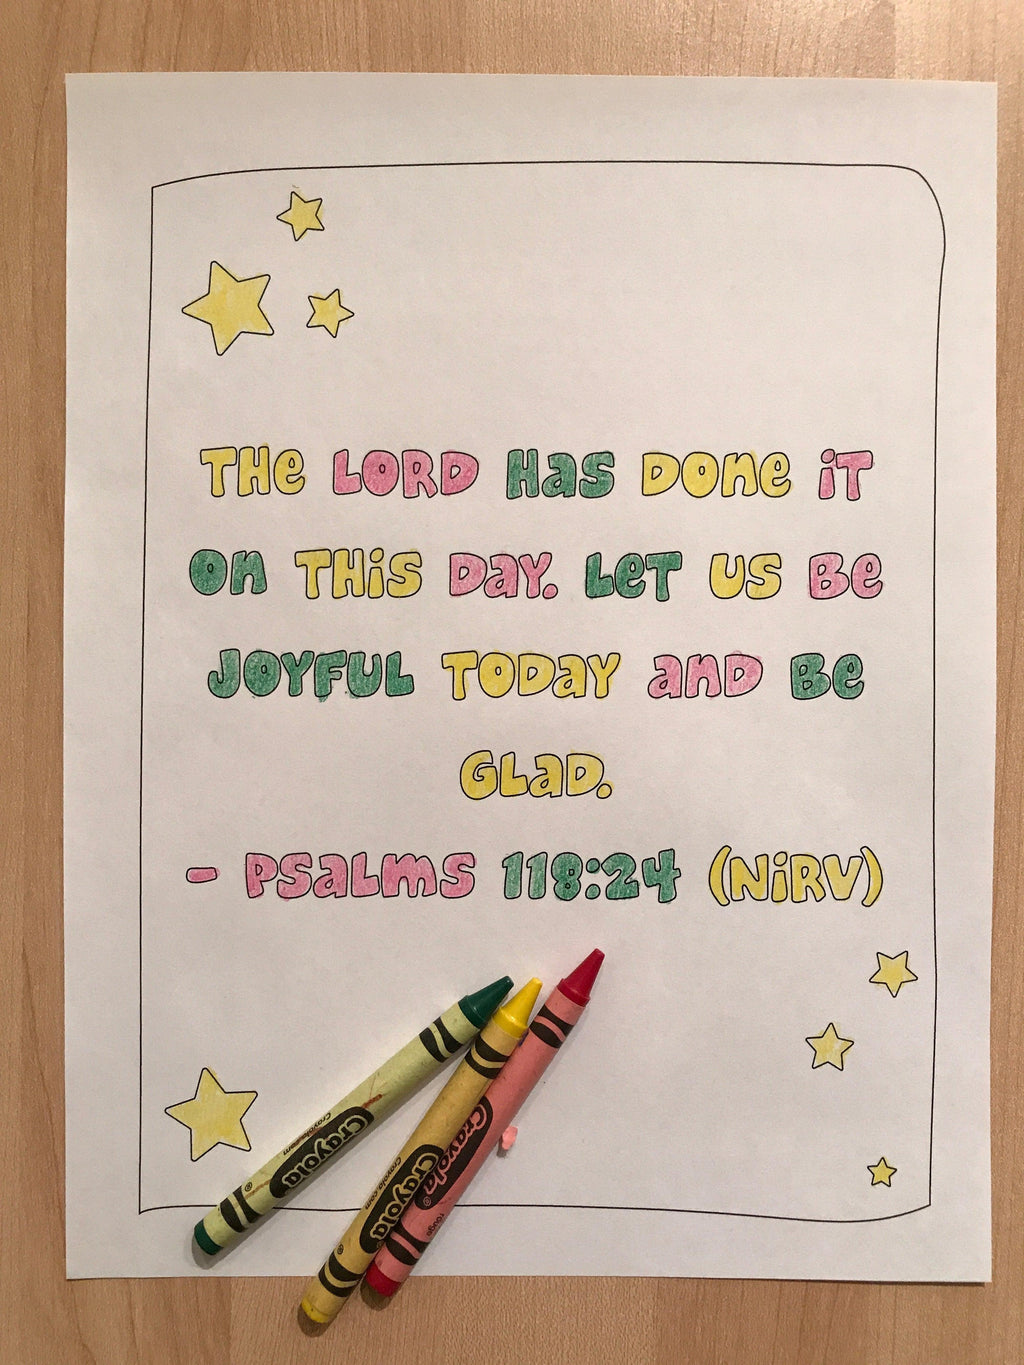 THE LORD HAS DONE IT
ON THIS DAY. LET US BE
JOYFUL TODAY AND BE
GLAD.
- PSALMS 118:24 (NIRV)
Crayola
Crayola.com
Crayola
Crayola.com
Crayola
rouge